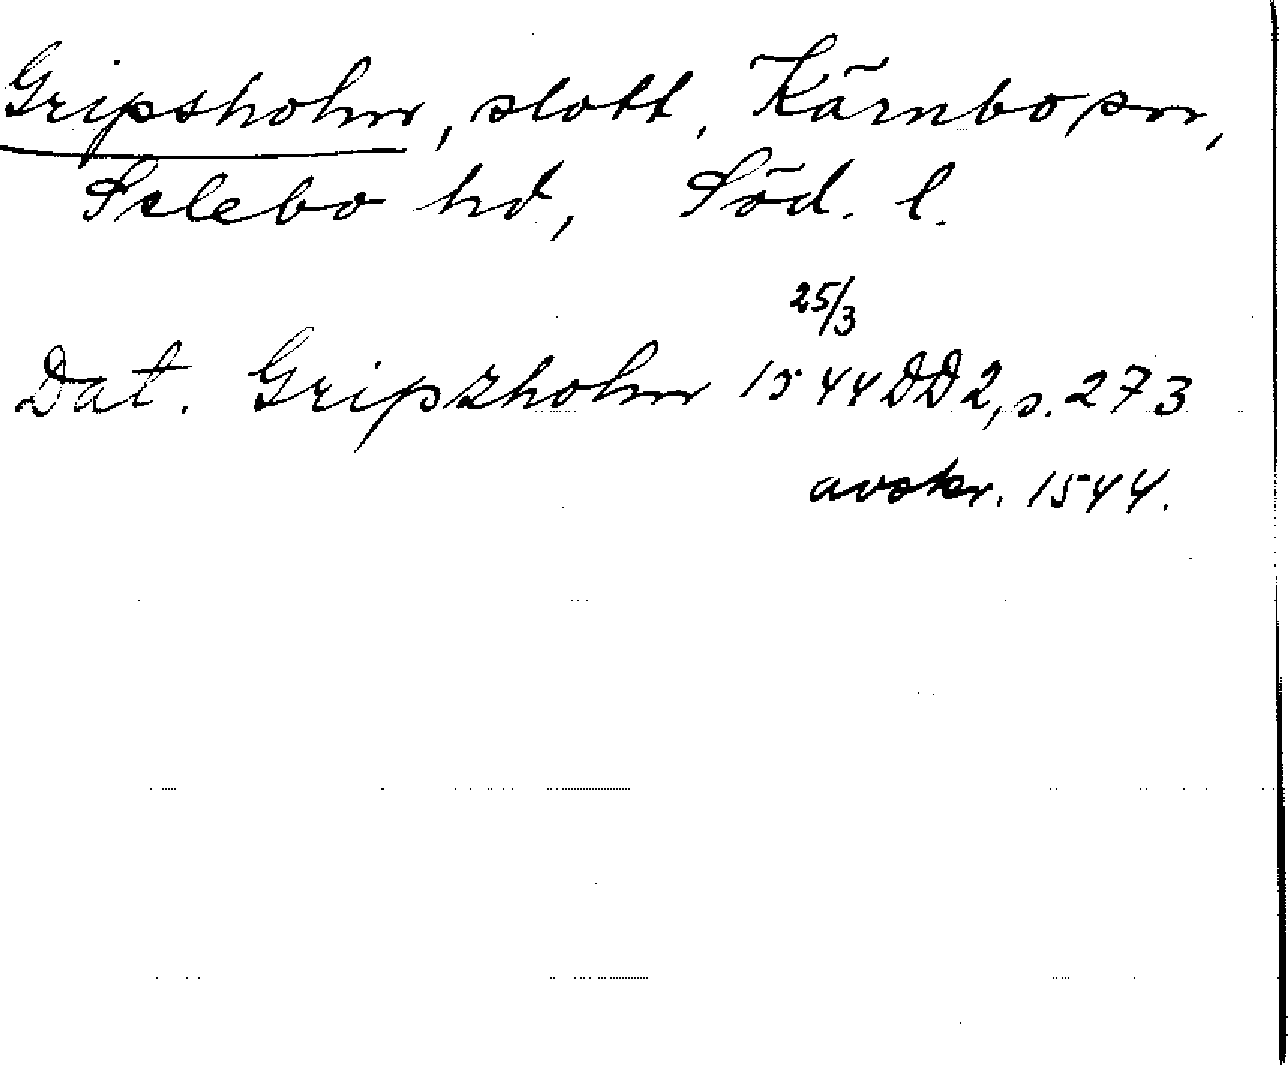 Gripsholm, slott, Kärnbo sn,
Selebo hd, Söd. l.
25/3
Dat. Gripzholm 1544 DD2, s. 273
avskr. 1544.